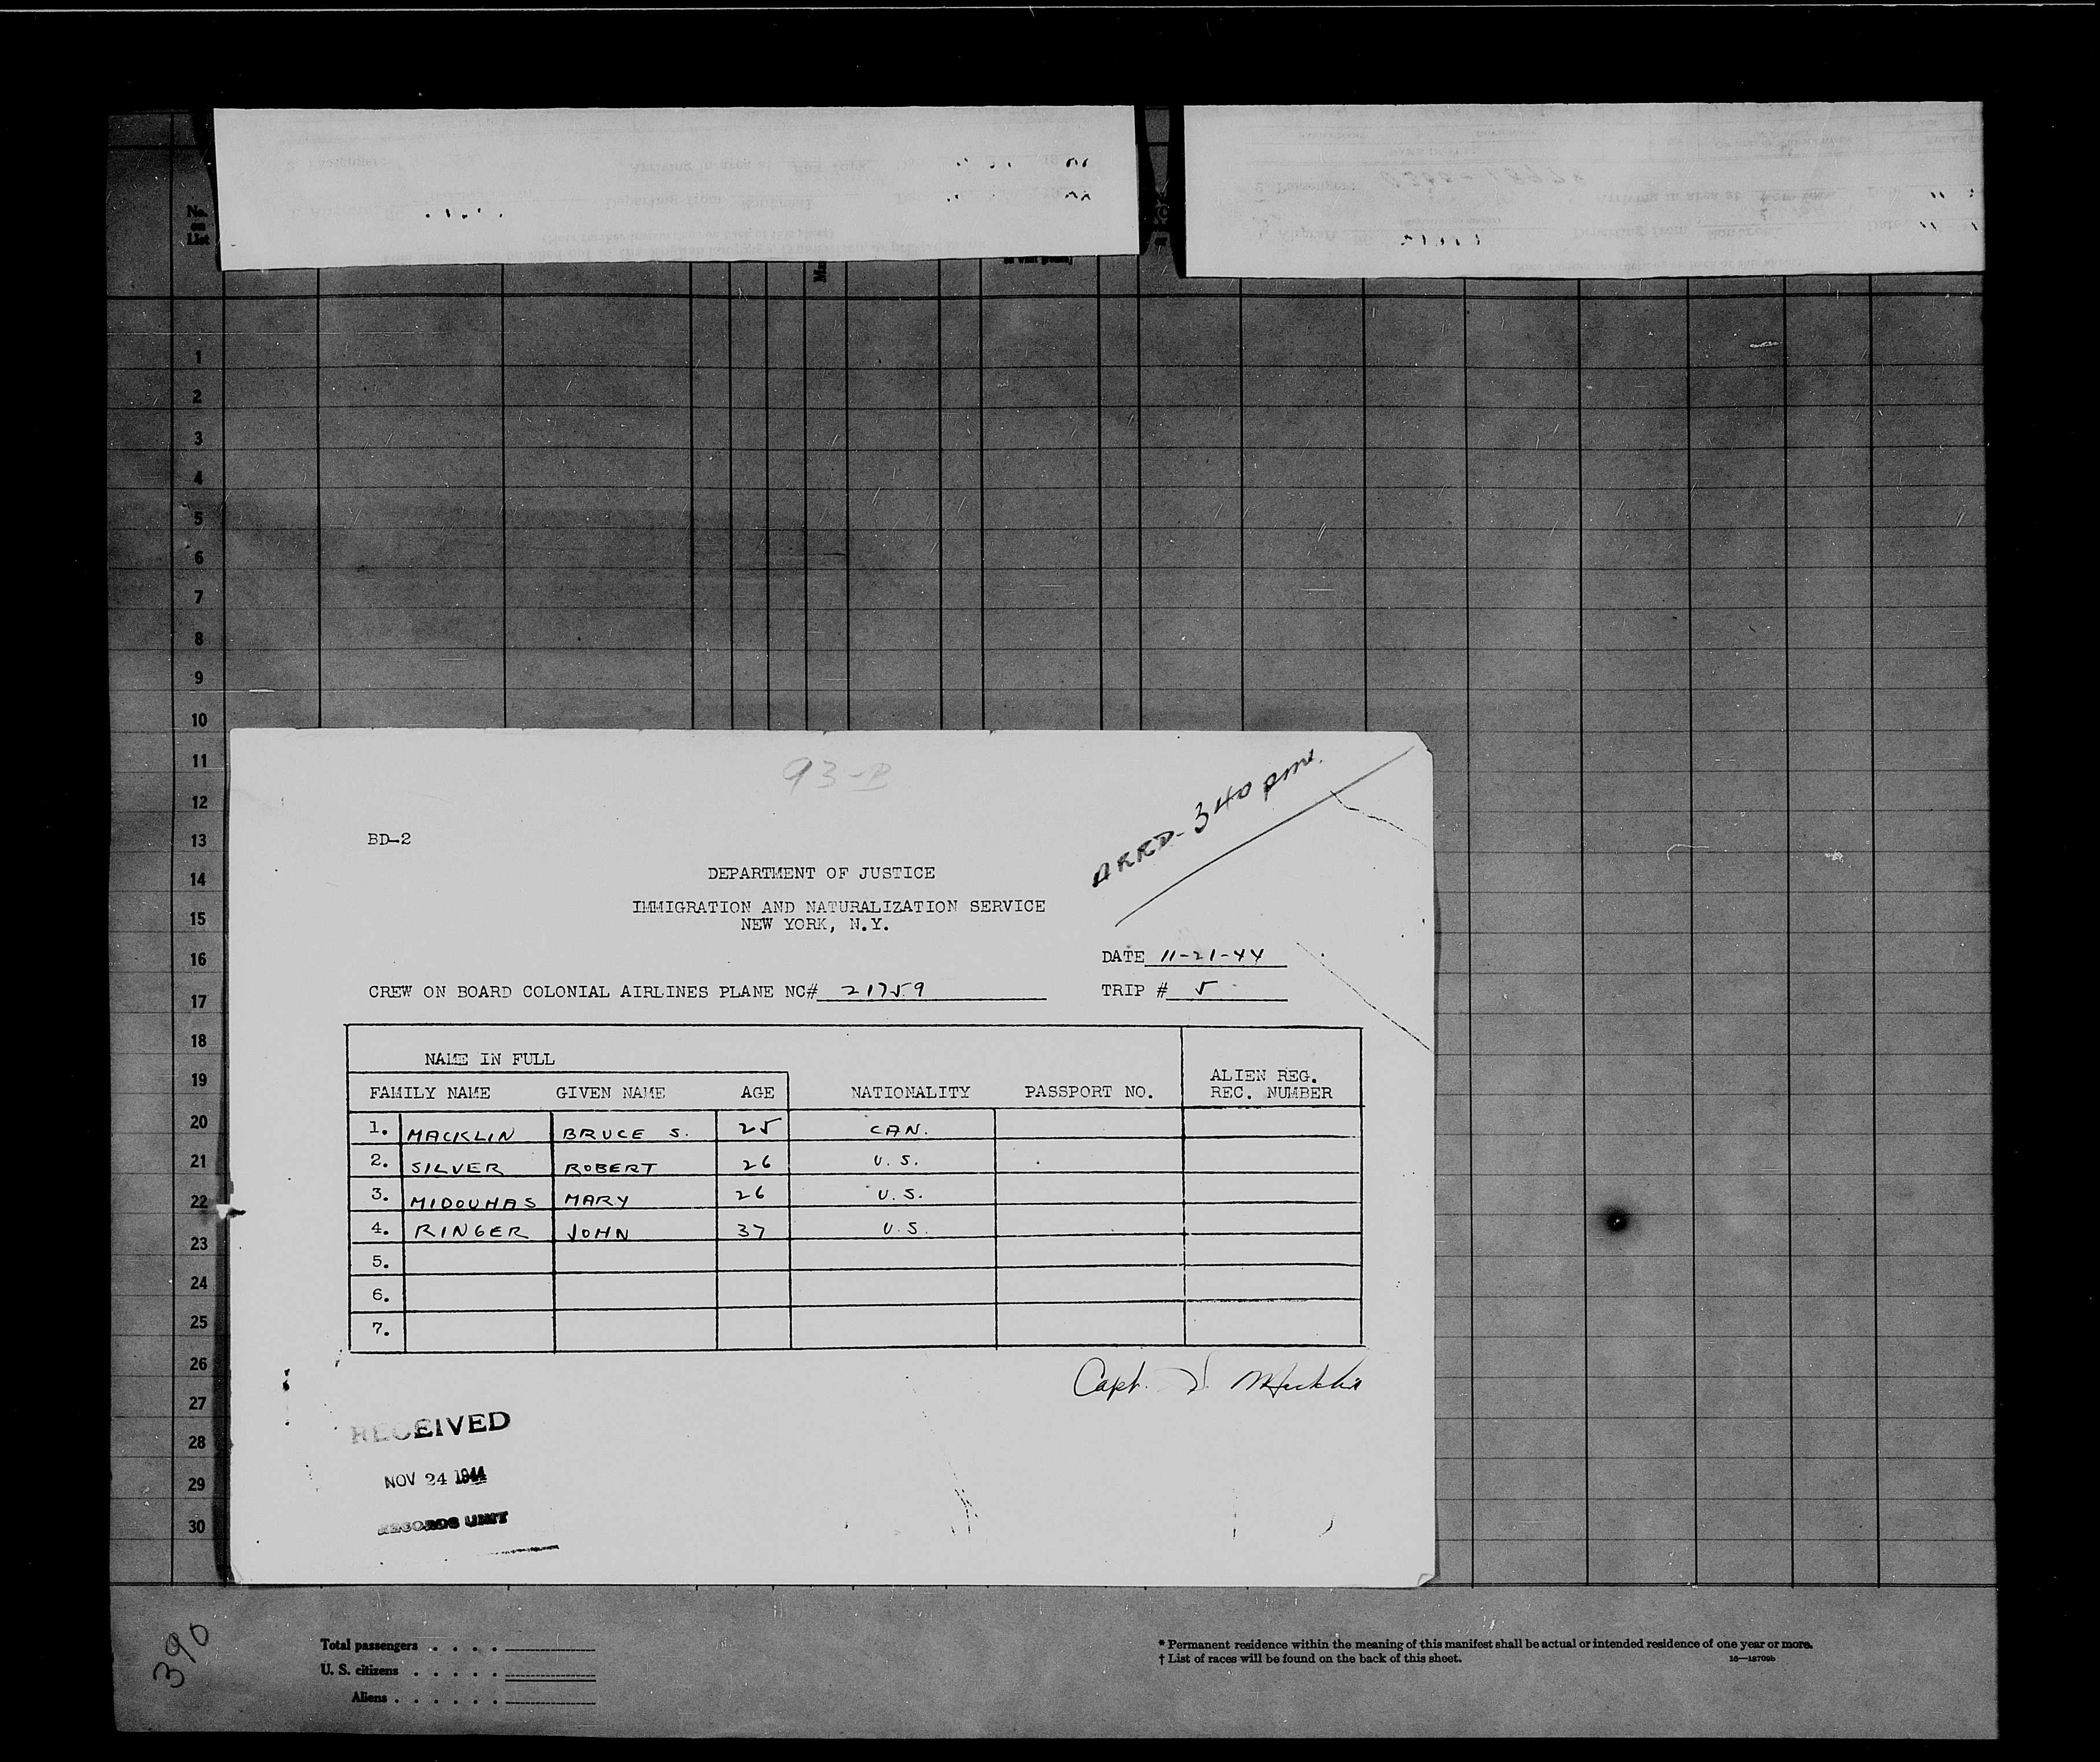 No.
on
List
1
2
3
4
5
6
7
8
9
10
11
12
13
14
15
16
17
18
19
20
21
22
23
24
25
26
27
28
29
30
93-B
ARRD- 340 pm.
BD-2
DEPARTMENT OF JUSTICE
IMMIGRATION AND NATURALIZATION SERVICE
NEW YORK, N.Y.
DATE 11-21-44
CREW ON BOARD COLONIAL AIRLINES PLANE NC# 21759 TRIP # 5
NAME IN FULL
FAMILY NAME GIVEN NAME AGE NATIONALITY PASSPORT NO. ALIEN REG. REC. NUMBER
1. MACKLIN BRUCE S. 25 CAN.
2. SILVER ROBERT 26 U.S.
3. MIDOUHAS MARY 26 U.S.
4. RINGER JOHN 37 U.S.
5.
6.
7.
Capt. Macklin
RECEIVED
NOV 24 1944
RECORDS UNIT
390
Total passengers . . . .
U. S. citizens . . . . .
Aliens . . . . . .
* Permanent residence within the meaning of this manifest shall be actual or intended residence of one year or more.
† List of races will be found on the back of this sheet.
16—18709b